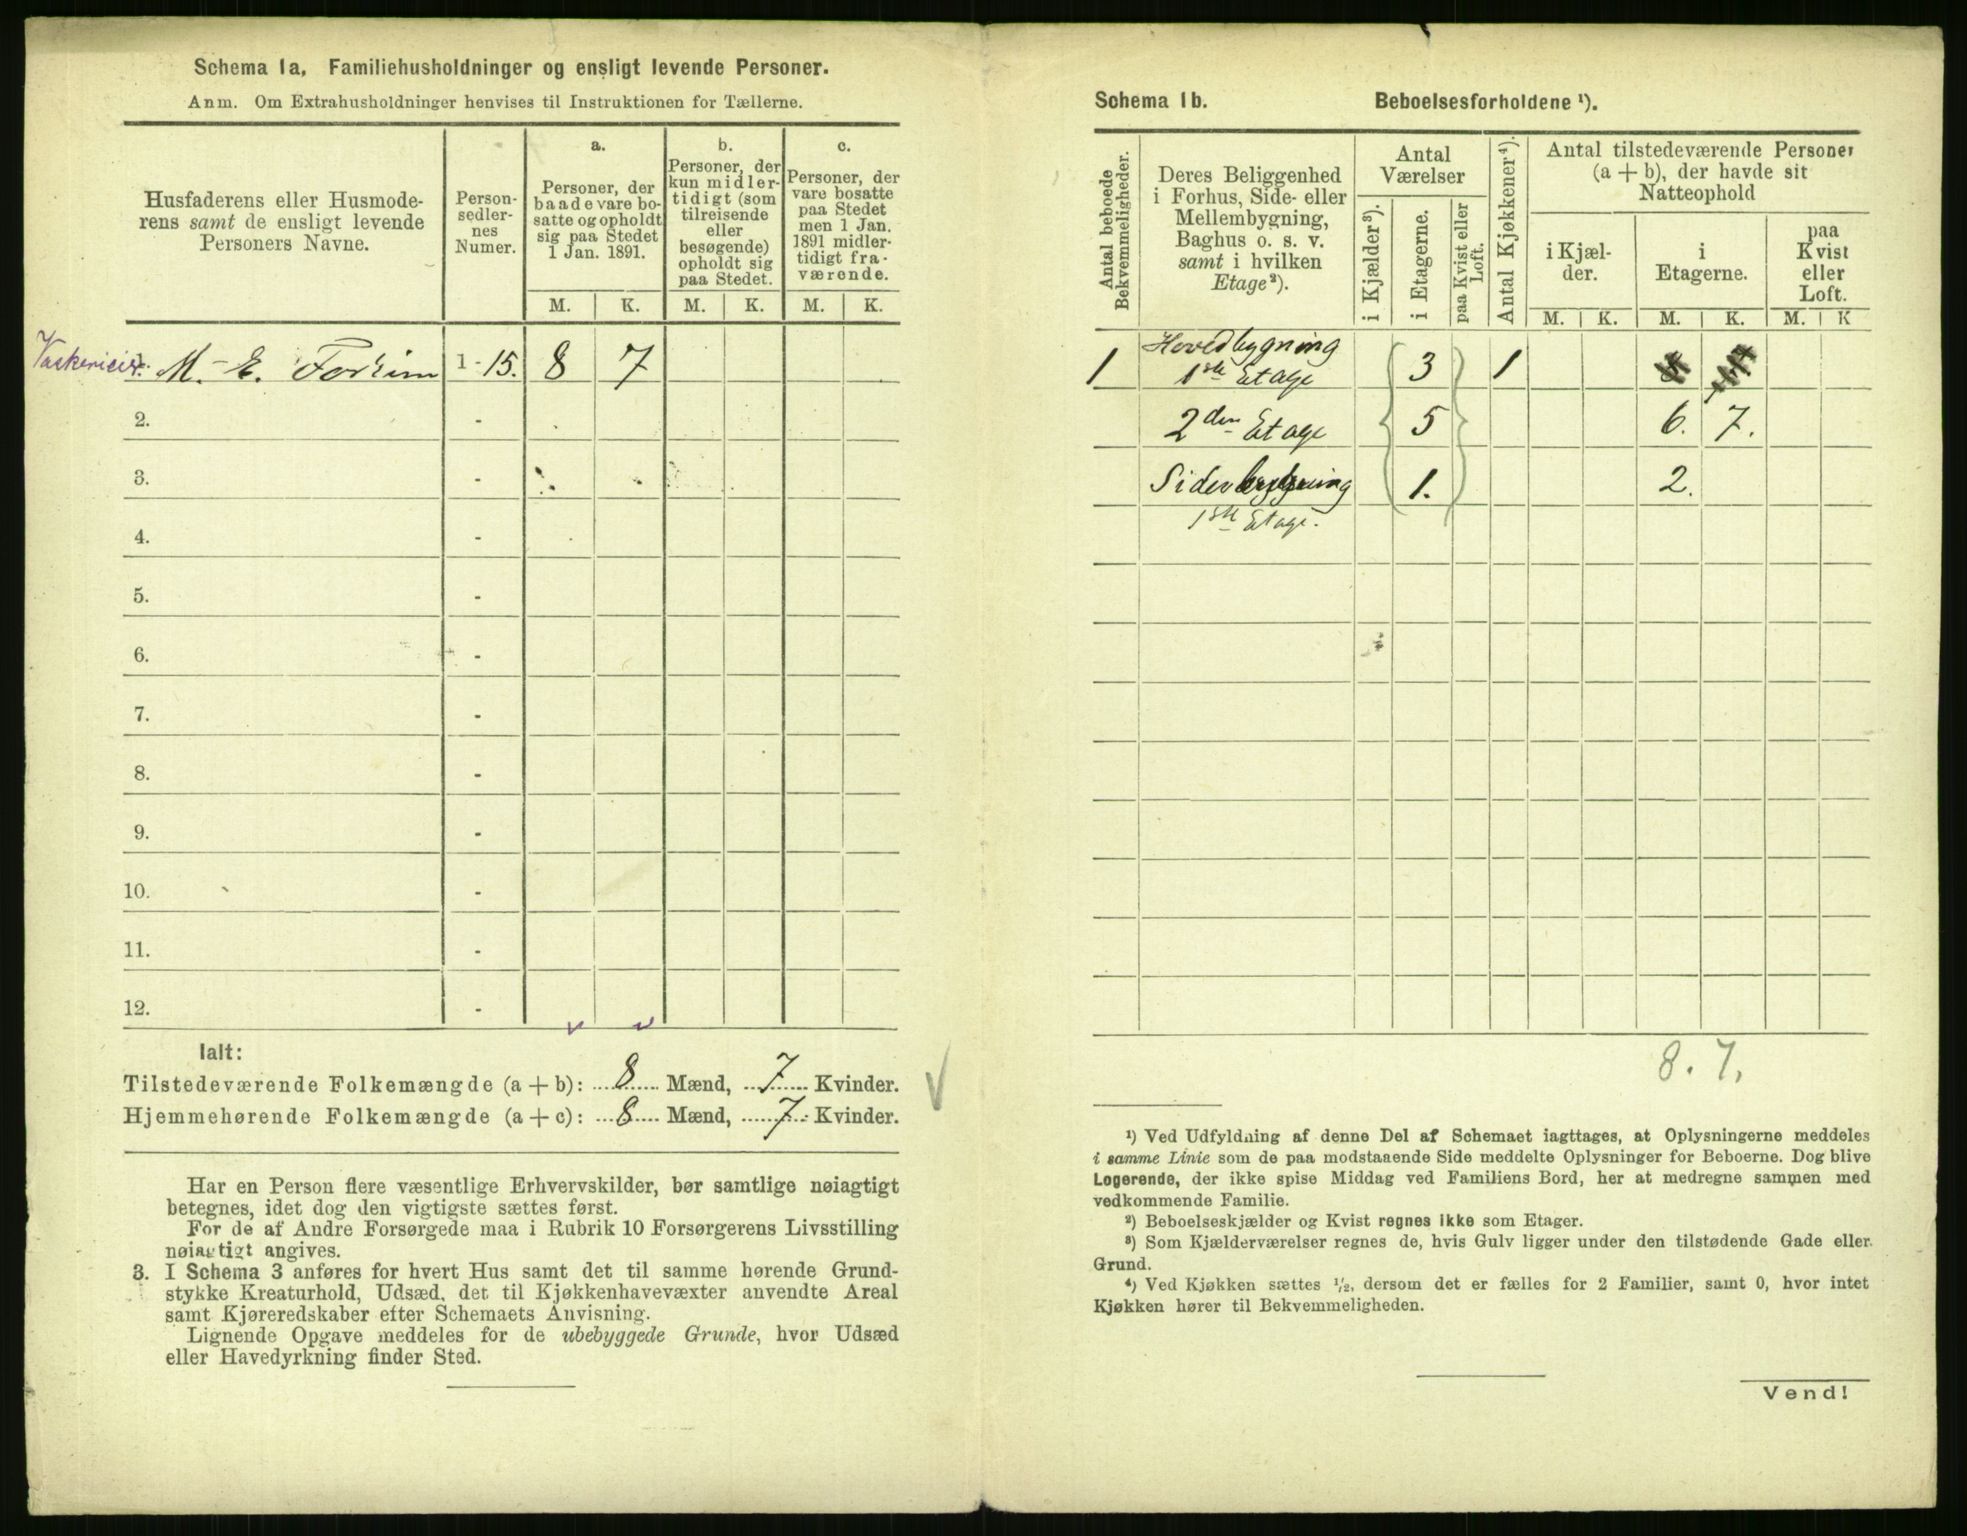 Schema 1a. Familiehusholdninger og ensligt levende Personer.
Anm. Om Extrahusholdninger henvises til Instruktionen for Tællerne.
Husfaderens eller Husmode-
rens samt de ensligt levende
Personers Navne.
Person-
sedler-
nes
Numer.
a.
Personer, der
baade vare bo-
satte og opholdt
sig paa Stedet
1 Jan. 1891.
b.
Personer, der
kun midler-
tidigt (som
tilreisende
eller
besøgende)
opholdt sig
paa Stedet.
c.
Personer, der
vare bosatte
paa Stedet
men 1 Jan.
1891 midler-
tidigt fra-
værende.
M. K. M. K. M. K.
M. E. 1 - 15. 8 7
2. -
3. -
4. -
5. -
6. -
7. -
8. -
9. -
10. -
11. -
12. -
Ialt:
Tilstedeværende Folkemængde (a + b): 8 Mænd, 7 Kvinder.
Hjemmehørende Folkemængde (a + c): 8 Mænd, 7 Kvinder.
Har en Person flere væsentlige Erhvervskilder, bør samtlige nøiagtigt
betegnes, idet dog den vigtigste sættes først.
For de af Andre Forsørgede maa i Rubrik 10 Forsørgerens Livsstilling
nøiagtigt angives.
3. I Schema 3 anføres for hvert Hus samt det til samme hørende Grund-
stykke Kreaturhold, Udsæd, det til Kjøkkenhavevæxter anvendte Areal
samt Kjøreredskaber efter Schemaets Anvisning.
Lignende Opgave meddeles for de ubebyggede Grunde, hvor Udsæd
eller Havedyrkning finder Sted.
Schema 1b. Beboelsesforholdene ¹).
Antal beboede
Bekvemmeligheder.
Deres Beliggenhed
i Forhus, Side- eller
Mellembygning,
Baghus o. s. v.
samt i hvilken
Etage²).
Antal
Værelser
i Kjælder³).
i Etagerne.
paa Kvist eller
Loft.
Antal Kjøkkener⁴).
Antal tilstedeværende Personer
(a + b), der havde sit
Natteophold
i Kjæl-
der.
i
Etagerne.
paa
Kvist
eller
Loft.
M. K. M. K. M. K
Hovedbygning
1 1ste Etage 3 1
2den Etage 5 6. 7.
Sidebygning 1. 2.
1ste Etage.
8. 7.
¹) Ved Udfyldning af denne Del af Schemaet iagttages, at Oplysningerne meddeles
i samme Linie som de paa modstaaende Side meddelte Oplysninger for Beboerne. Dog blive
Logerende, der ikke spise Middag ved Familiens Bord, her at medregne sammen med
vedkommende Familie.
²) Beboelseskjælder og Kvist regnes ikke som Etager.
³) Som Kjælderværelser regnes de, hvis Gulv ligger under den tilstødende Gade eller
Grund.
⁴) Ved Kjøkken sættes ½, dersom det er fælles for 2 Familier, samt 0, hvor intet
Kjøkken hører til Bekvemmeligheden.
Vend!